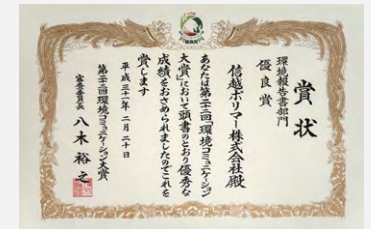 賞状
環境報告書部門
優良賞
信越ポリマー株式会社殿
あなたは第二十二回「環境コミュニケーション
大賞」において頭書のとおり優秀な
成績をおさめられましたのでこれを
賞します
平成三十一年二月二十日
第二十二回環境コミュニケーション大賞
審査委員長 八木裕之